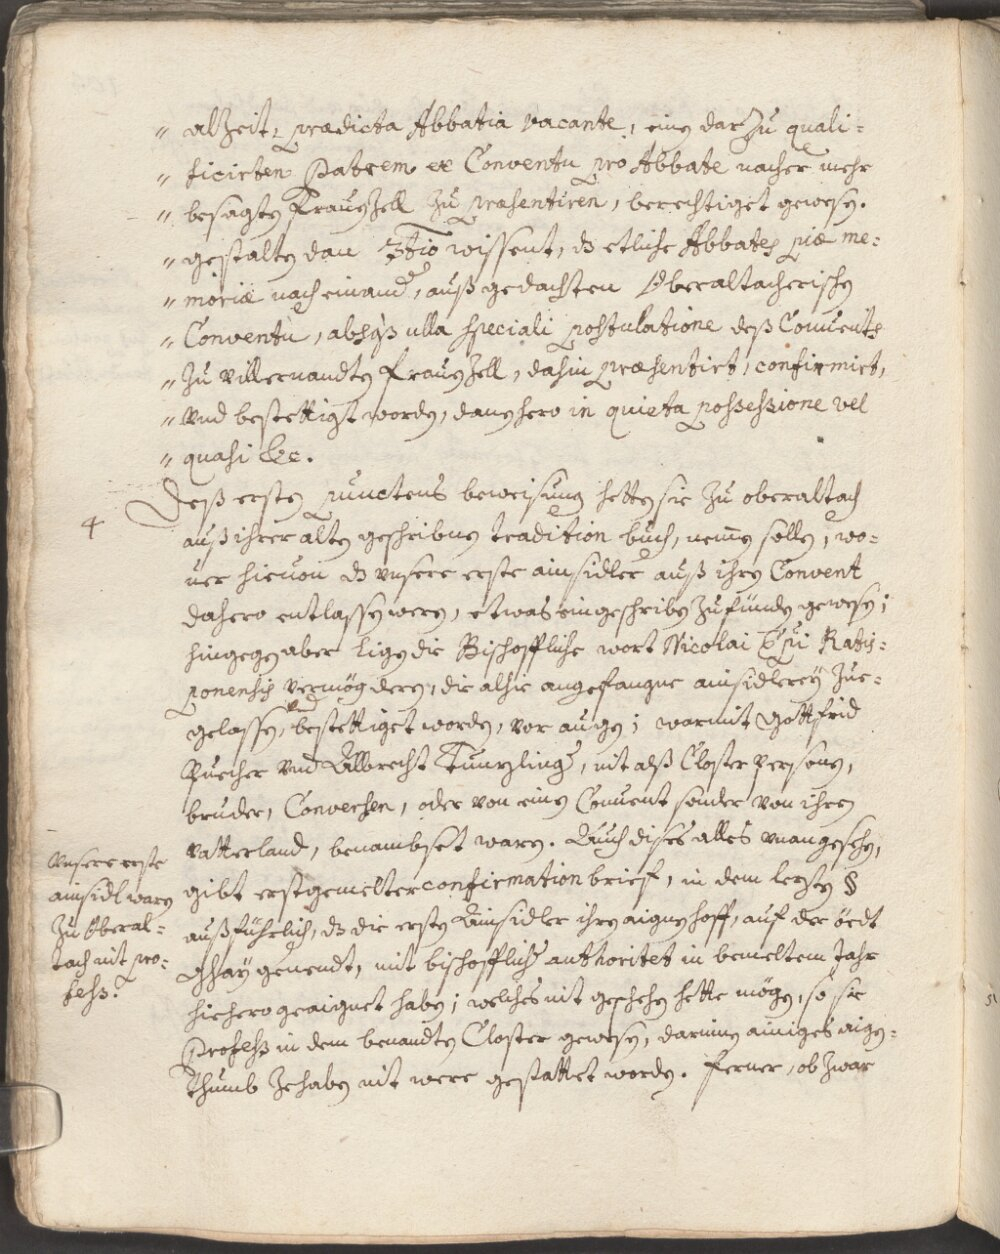 " alZeit, prædicta Abbatia vacante, einen darZu quali=
" ficirten Patrem ex Conventu pro Abbate nacher mehr
" besagten Frauenzell Zu præsentiren, berechtiget gewesen.
" gestalten dan wissent, dz etliche Abbates piæ me=
" moriæ nach einander, auß gedachten Oberaltacherischen
" Conventu, absque ulla speciali postulatione deß Convents
" Zu villernandten Frauenzell, dahin præsentirt, confirmirt,
" vnd bestettigt worden, danenhero in quieta possessione vel
" quasi &c.
4
Deß ersten punctens beweisung hetten sie Zu oberaltach
auß ihrer alten geschribnen tradition buch, nemen sollen, wo=
uer hieuon dz vnsere erste ainsidler auß ihren Convent
dahero entlassen weren, etwas eingeschriben Zufünden gewesen;
hingegen aber ligen die Bischoffliche wort Nicolai Epi Ratis=
ponensis vermög deren, die alhie angefangne ainsidlereÿ Zue=
gelassen, vnd bestettiget worden, vor augen; warmit Gottfrid
Puecher vnd Albrecht Tünzling, nit alß Closter personen,
bruder, Conversen, oder von einen Convent sonder von ihren
vatterland, benambset waren. Auch dises alles vnangesehen,
gibt erstgemelter confirmation brief, in dem lezsten §
außführlich, dz die ersten Ainsidler ihren aignen hoff, auf der öedt
genendt, mit bischofflicher authoritet in bemeltem Jahr
hiehero geaignet haben; welches nit geschehen hette mögen, so sie
Profess in dem benandten Closter gewesen, darinnen ainiges aigen=
thumb Zehaben nit were gestattet worden. Ferner, ob Zwar
Vnsere erste
ainsidl waren
Zu Oberal=
tach nit pro=
fess.